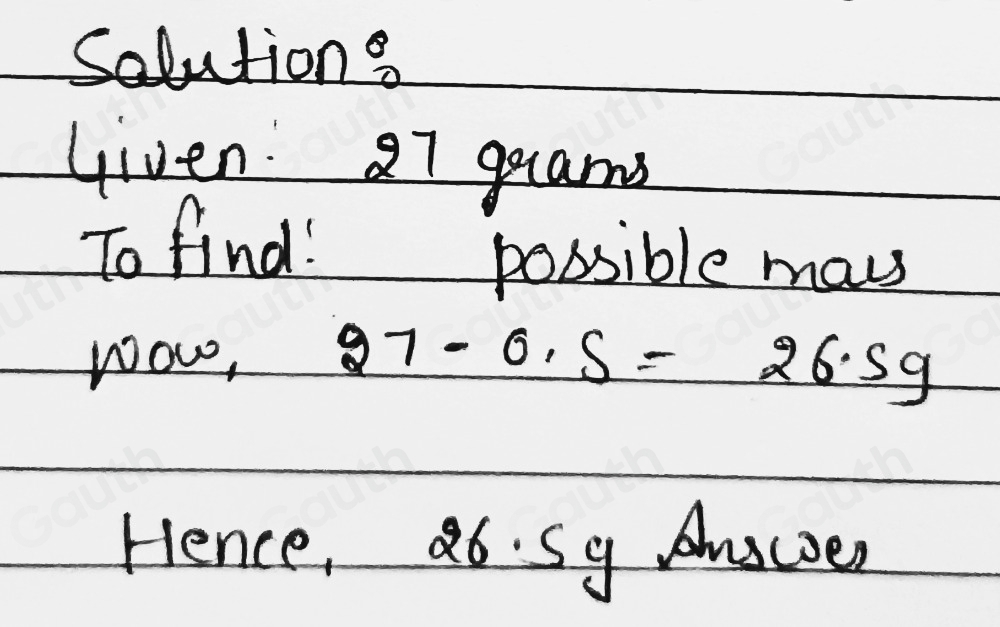 Solution:
Given: 27 grams
To find: possible mass
Now, 27 - 0.5 = 26.5g
Hence, 26.5g Answer